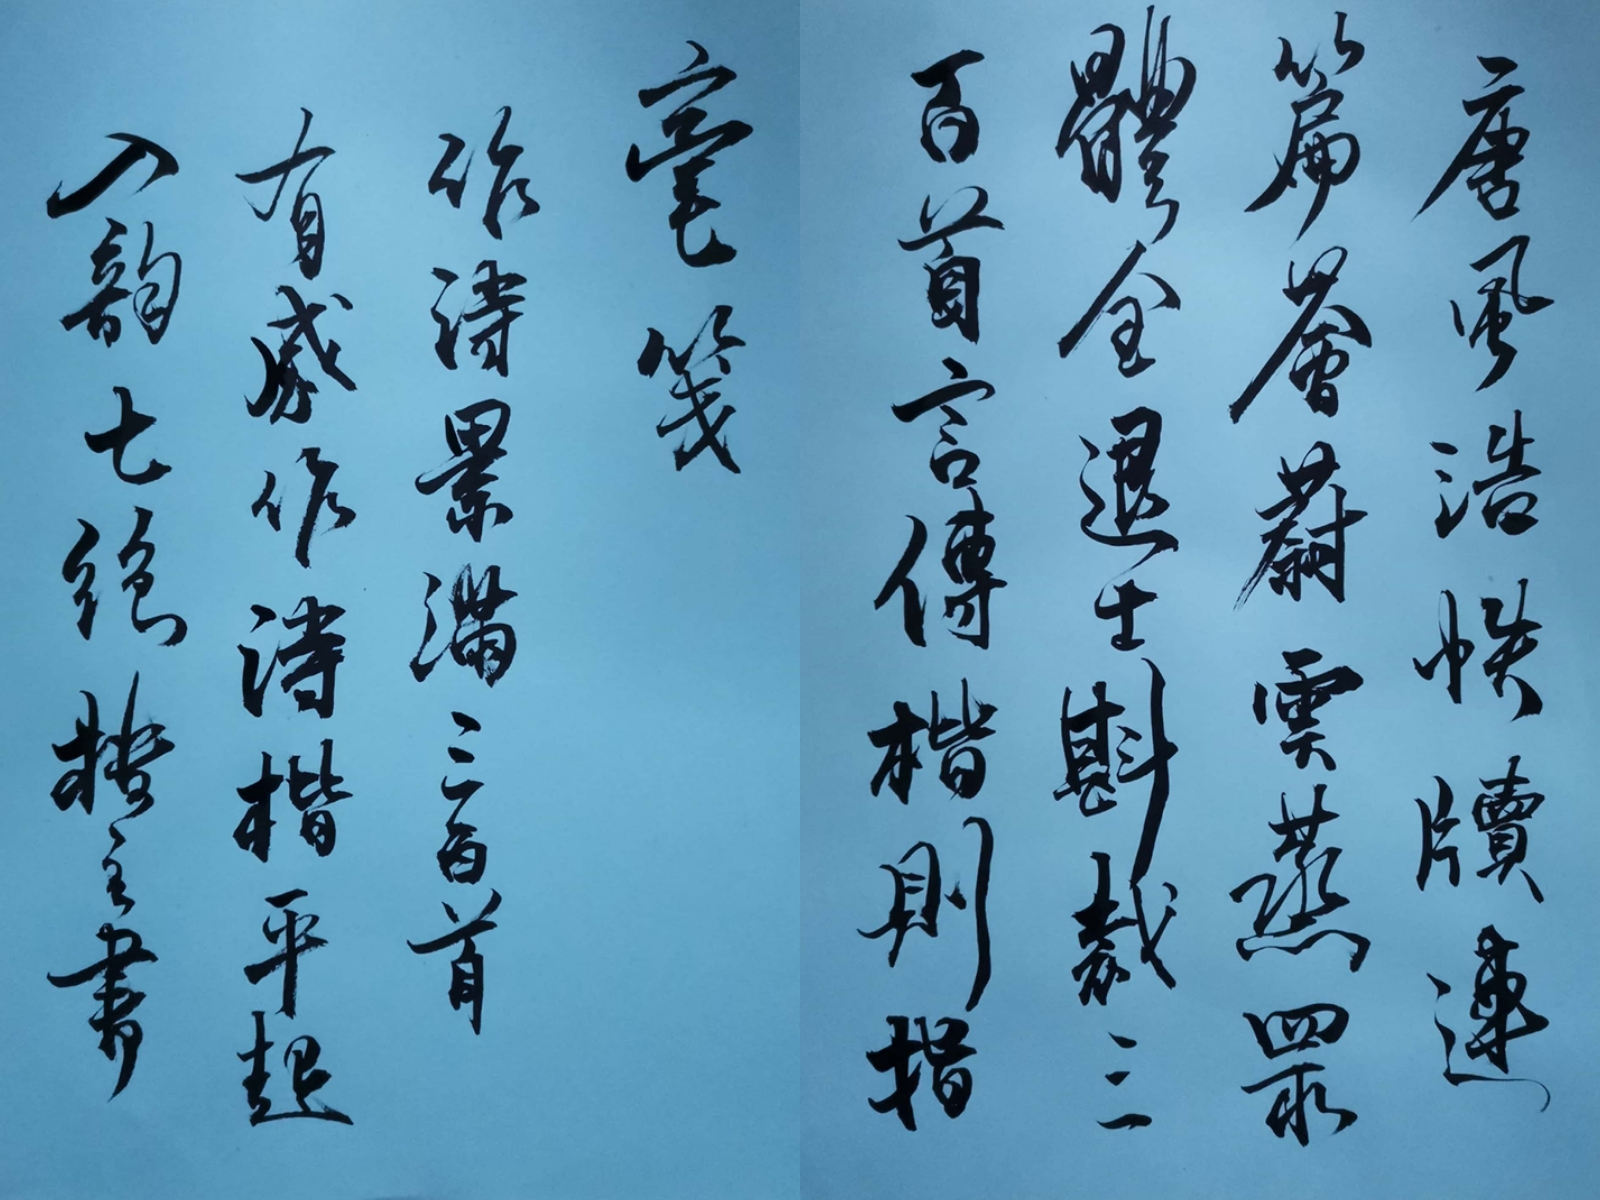 唐風浩帙牘連
篇薈蔚雲蒸眾
體全退士斟裁三
百首言傳楷則指
毫箋
作詩累滿三百首
有感作詩楷平起
入韵七絕 主書